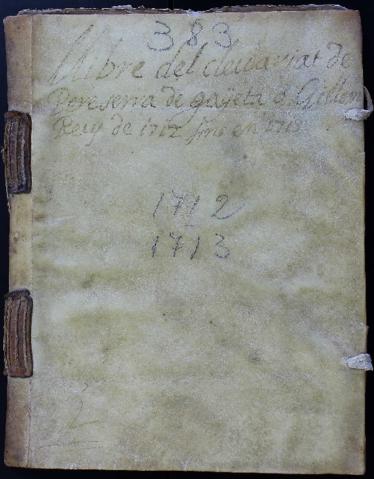 383
Llibre del clavariat de
Pere serra de gaieta o Gillem
Reig de 1712 fins en 1713
1712
1713
2